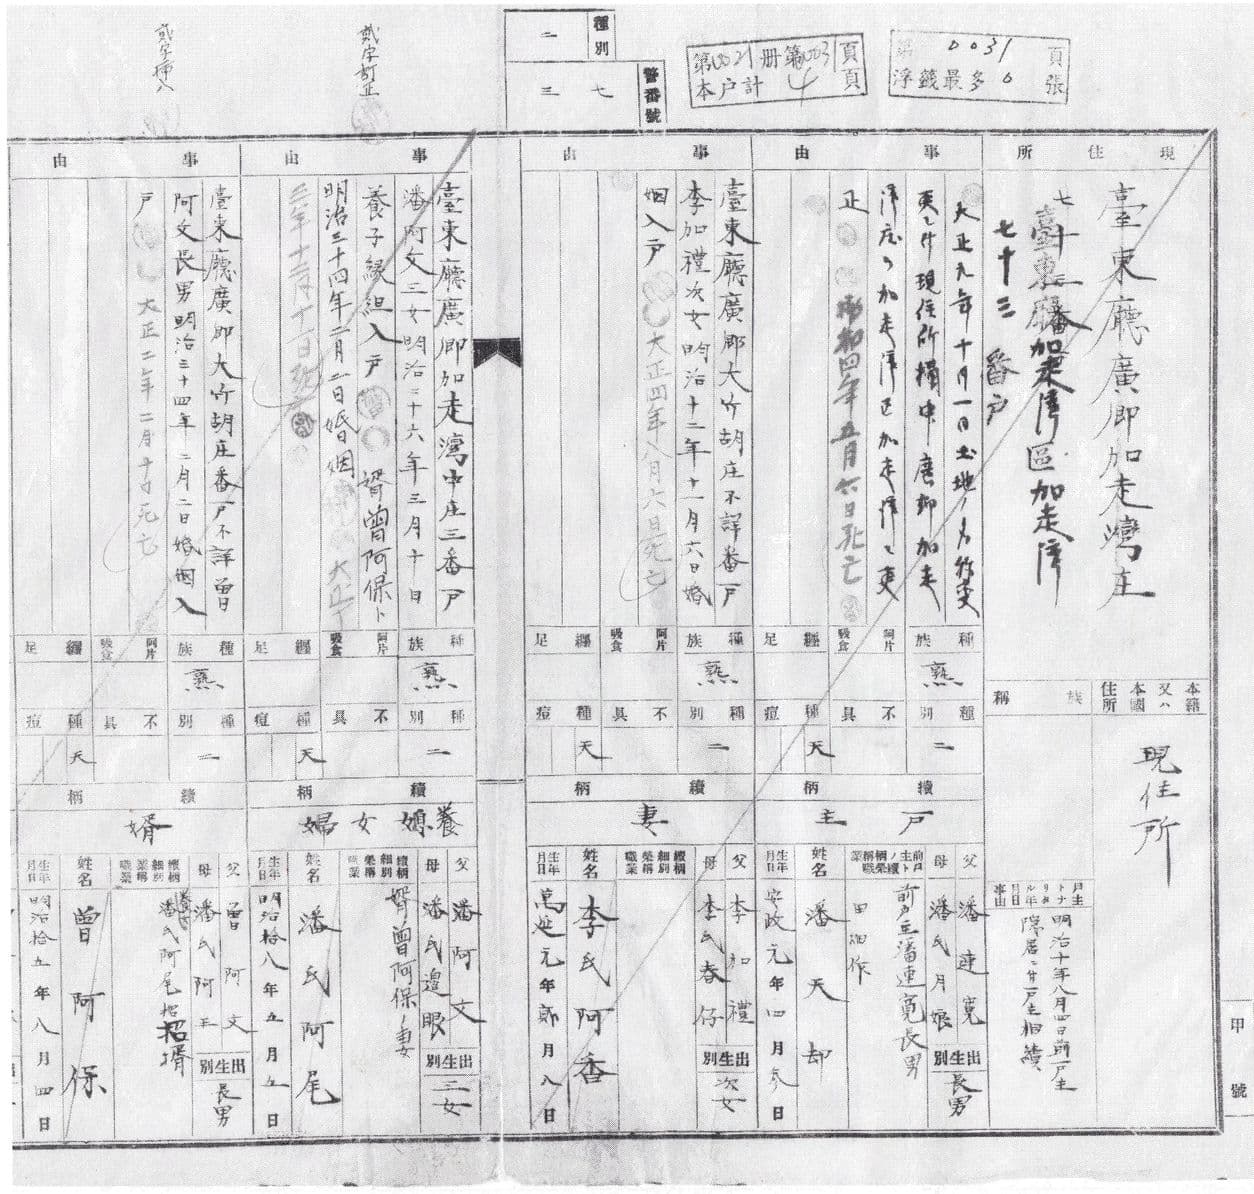 第0021册第003頁
本戶計4頁
第0031頁
浮籤最多0張
種別
二
警番號
七三
貳字訂正
貳字挿入
現住所
臺東廳廣鄉加走灣庄
七十三番
臺東廳加走灣區加走灣
七十三番戶
本籍又ハ本國住所
現住所
族稱
戶主トナリタル年月日事由
明治十年八月四日前戶主
隱居ニ付戶主相續
事由
大正九年十月一日土地ノ名稱變
更ニ付現住所欄中廣鄉加走
灣庄ヲ加走灣區加走灣ニ更
正
昭和四年五月六日死亡
種族
熟
阿片吸食
纏足
種別
二
不具
種痘
天
續柄
戶主
父
潘連寬
母
潘氏月娘
出生別
長男
前戶主トノ續柄榮稱職業
前戶主潘連寬長男
田畑作
姓名
潘天却
生年月日
安政元年四月參日
事由
臺東廳廣鄉大竹胡庄不詳番戶
李加禮次女明治十二年十一月六日婚
姻入戶
大正四年八月六日死亡
種族
熟
阿片吸食
纏足
種別
二
不具
種痘
天
續柄
妻
父
李加禮
母
李氏春仔
出生別
次女
續柄細別榮稱職業
姓名
李氏阿香
生年月日
萬延元年
月八日
事由
臺東廳廣鄉加走灣中庄三番戶
潘阿文三女明治二十六年三月十日
養子緣組入戶
婿曾阿保ト
明治三十四年二月二日婚姻
大正
二年十二月十一日
種族
熟
阿片吸食
纏足
種別
二
不具
種痘
天
續柄
養媳女
婦
父
潘阿文
母
潘氏遑眼
出生別
三女
續柄細別榮稱職業
婿曾阿保ノ妻
姓名
潘氏阿尾
生年月日
明治拾八年五月五日
事由
臺東廳廣鄉大竹胡庄番戶不詳曾
阿文長男明治三十四年二月二日婚姻入
戶
大正二年二月十日死亡
種族
熟
阿片吸食
纏足
種別
二
不具
種痘
天
續柄
婿
父
曾阿文
母
潘氏阿玉
出生別
長男
續柄細別榮稱職業
潘氏阿尾
招婿
姓名
曾阿保
生年月日
明治拾五年八月四日
甲
號